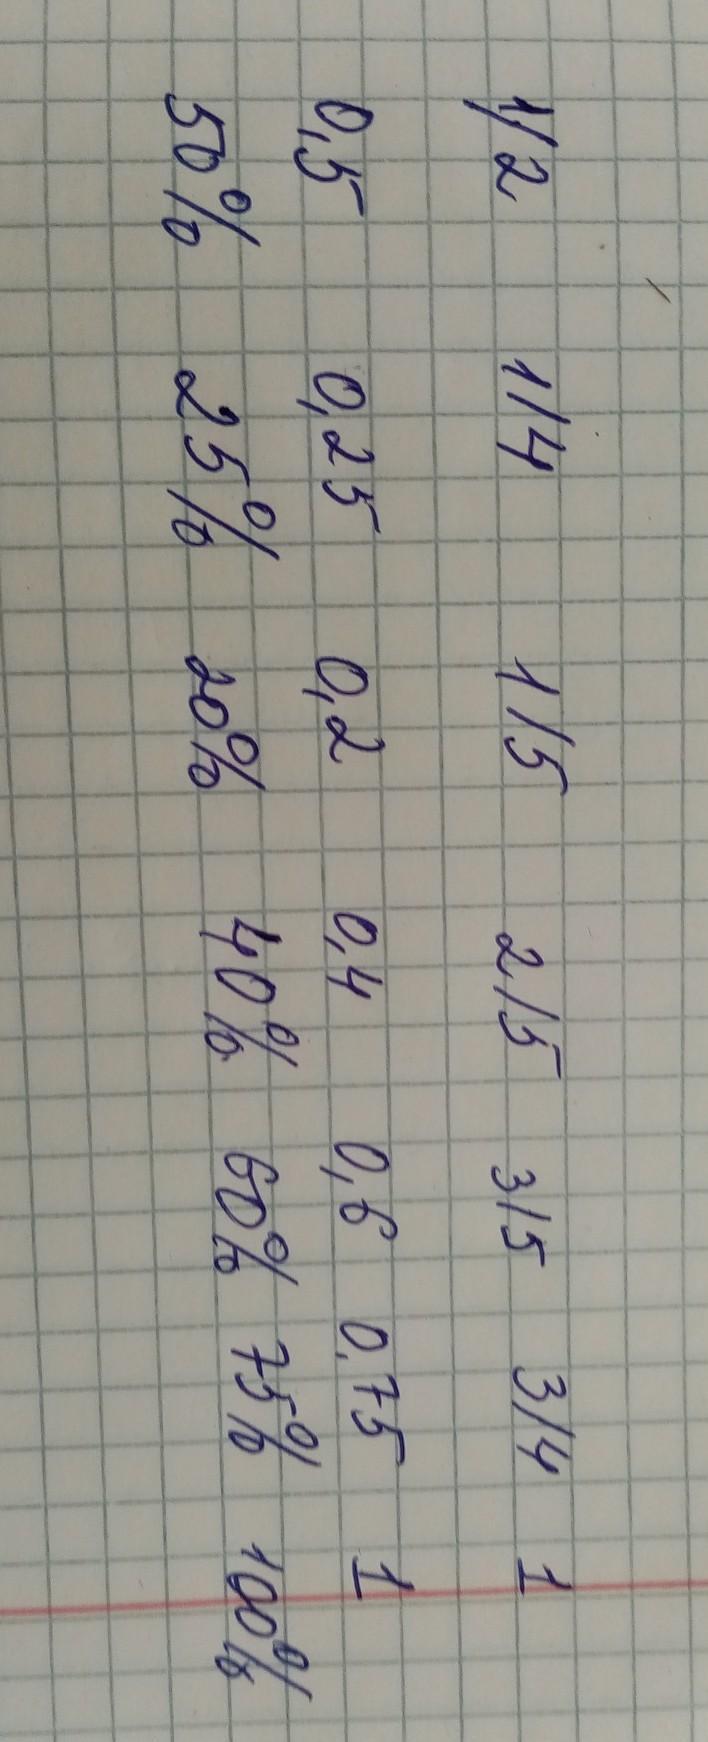 1/2 1/4 1/5 2/5 3/5 3/4 1
0,5 0,25 0,2 0,4 0,6 0,75 1
50% 25% 20% 40% 60% 75% 100%